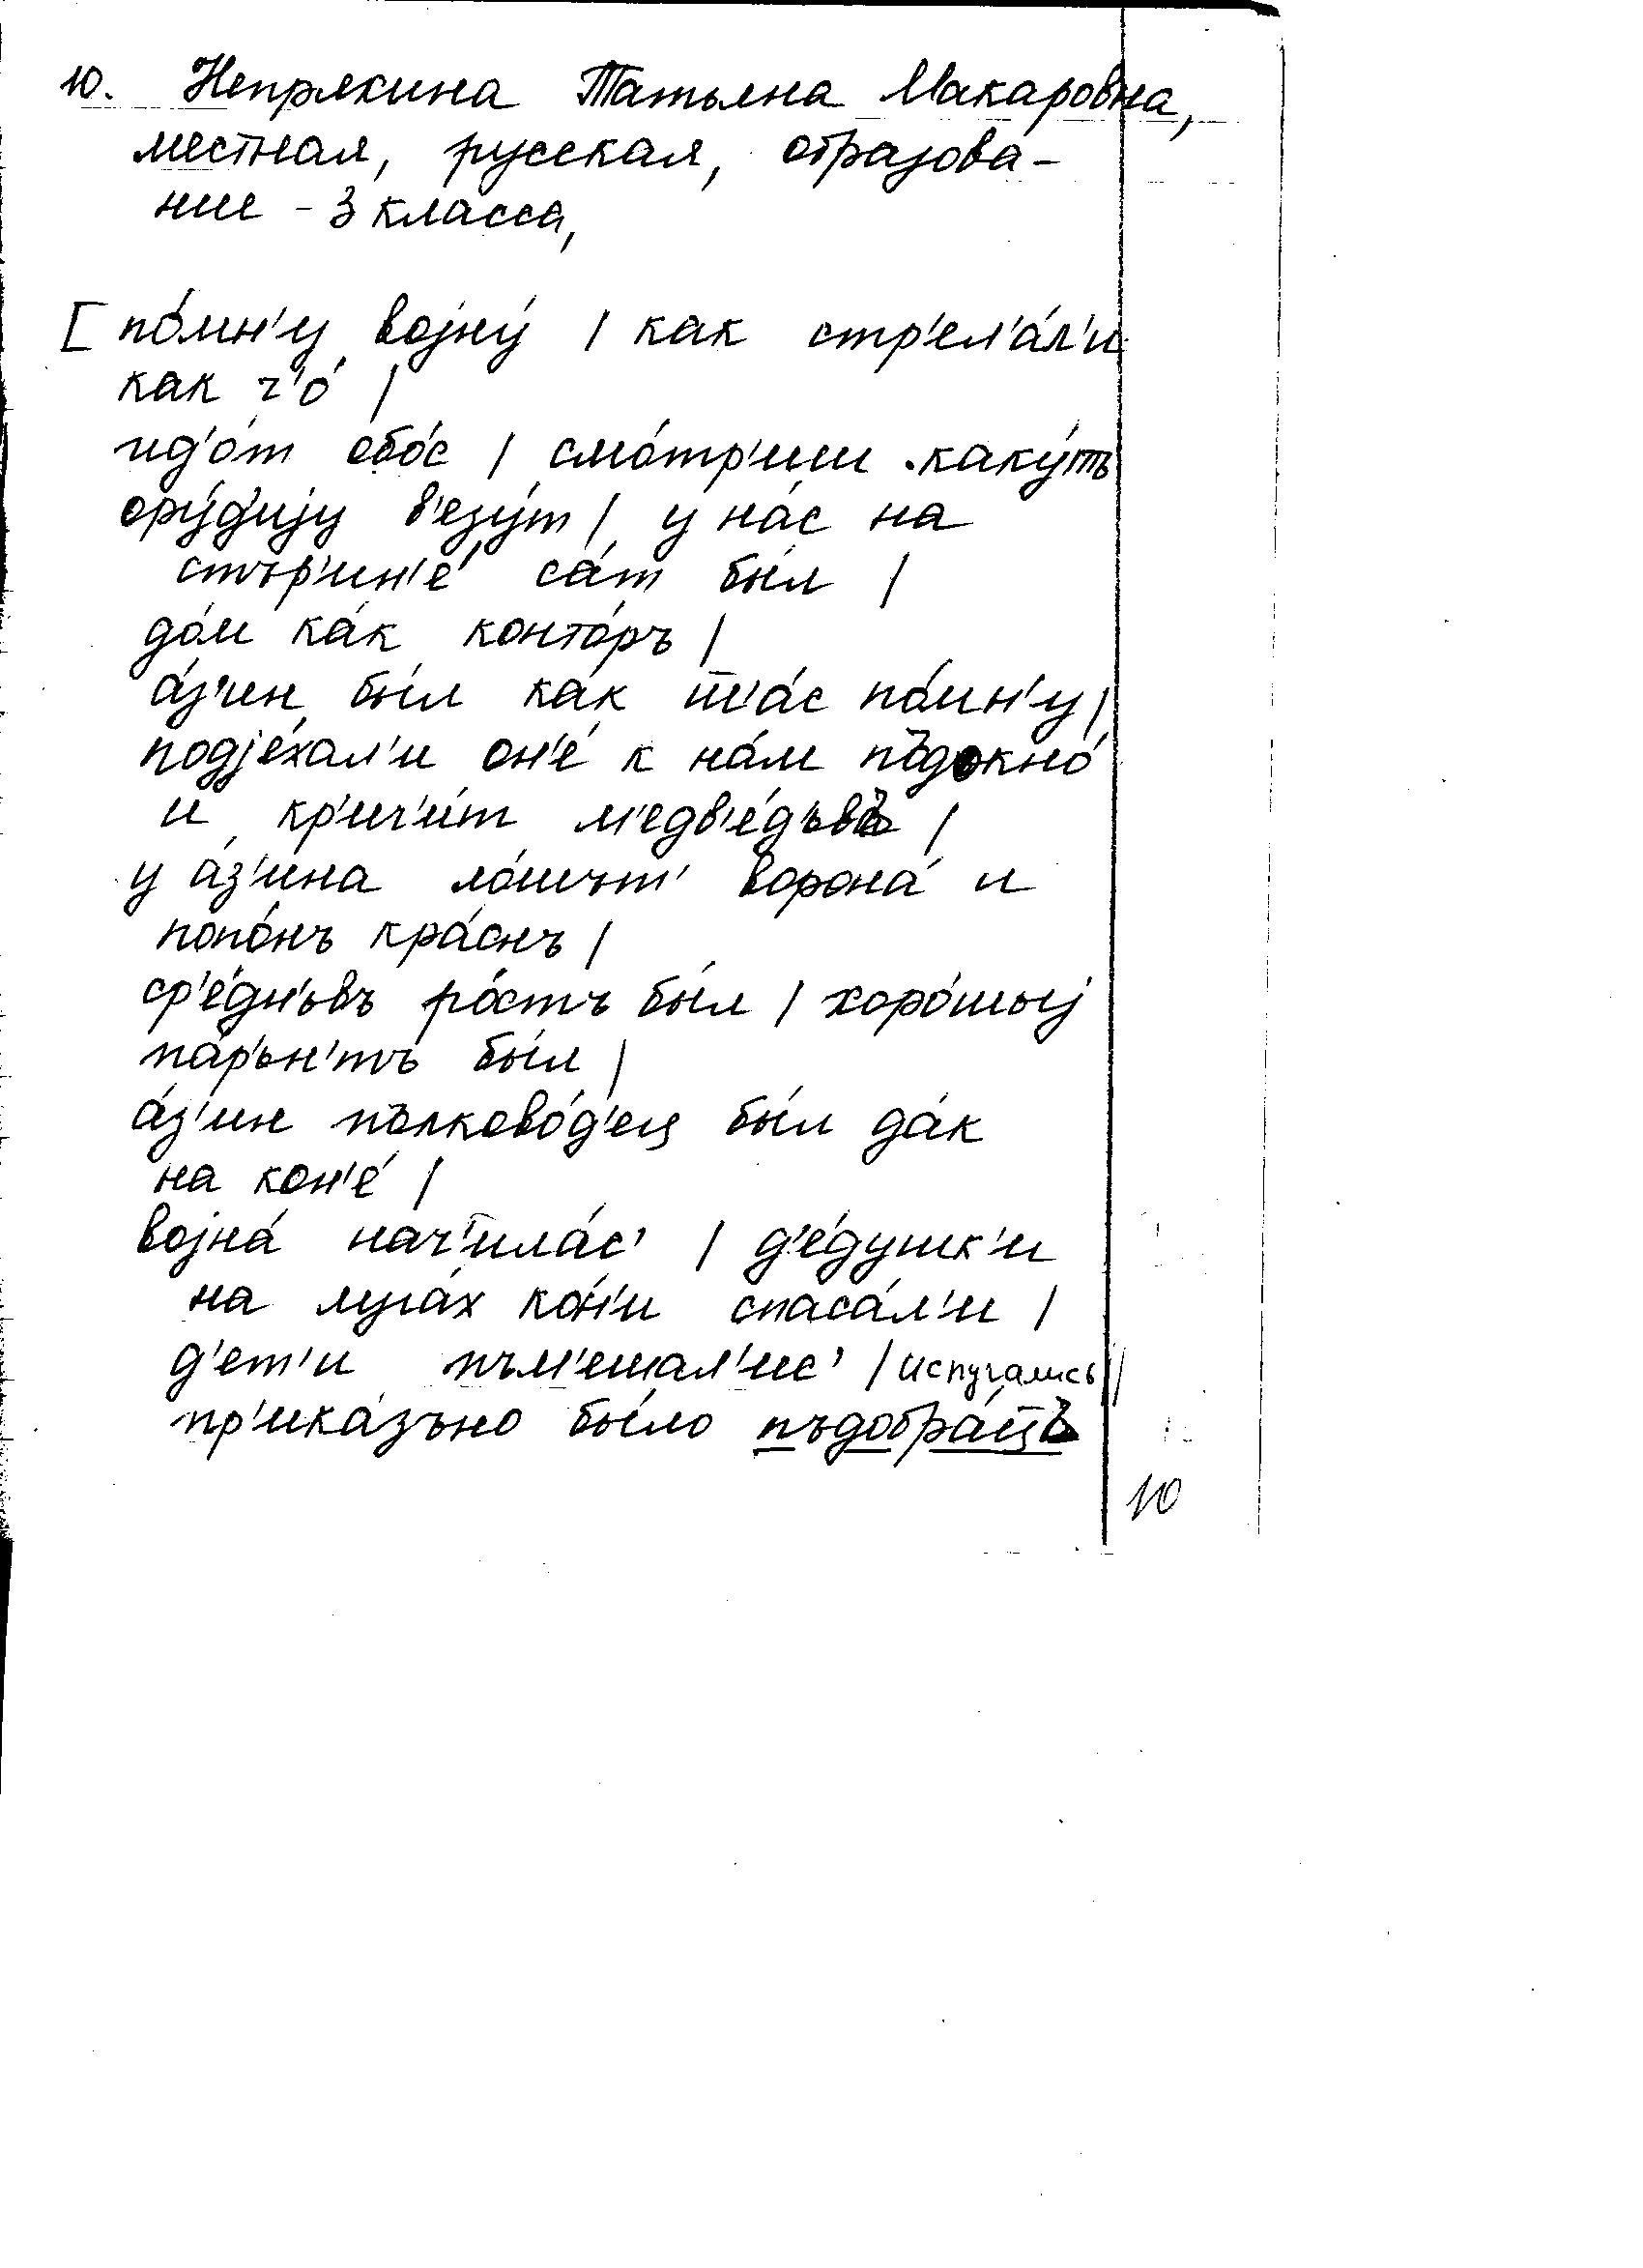 10. Непряхина Татьяна Макаровна,
местная, русская, образова-
ние - 3 класса,
[ по́мн'у војну́ / как стр'ел'а́л'и
как ч'о́ /
ид'о́т обо́с / смо́тр'иш какýтъ
орýд'ијy в'езýт / у на́с на
стър'ин'е́ са́т бы́л /
до́м ка́к конто́ръ /
а́з'ин бы́л ка́к то́ помн'у /
подје́хал'и он'е́ к на́м пъдокно́
и кр'ич'и́т м'едв'е́дъвъ /
у а́з'ина ло́шът' ворона́ и
попо́нъ кра́снъ /
ср'е́дн'ьвъ ро́стъ бы́л / хоро́шыј
па́р'ьн'тъ бы́л /
а́з'ин пълково́д'ец бы́л да́к
на кон'е́ /
војна́ нач'ила́с' / д'е́душк'и
на луга́х ко́н'и спаса́л'и /
д'ет'и пъм'ешал'ис' / испугались /
пр'ика́зъно бы́ло пъдобра́цъ
10